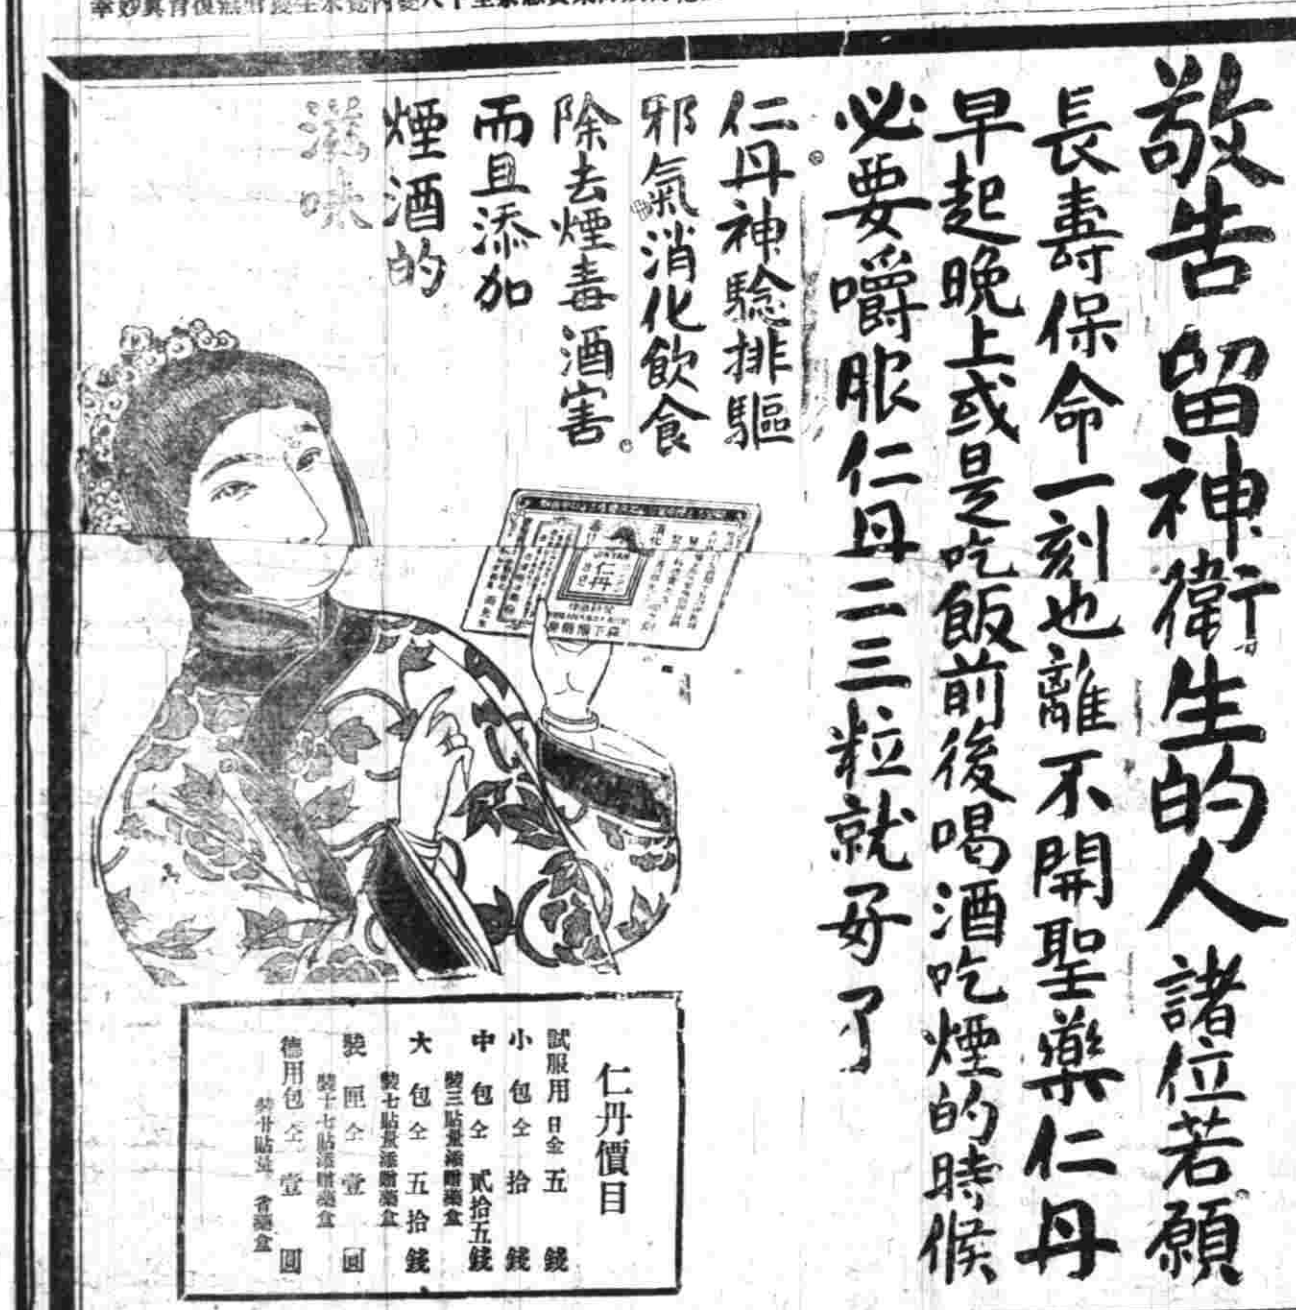 敬告留神衛生的人諸位若願
長壽保命一刻也離不開聖藥仁丹
早起晚上或是吃飯前後喝酒吃煙的時候
必要嚼服仁丹二三粒就好了。
仁丹神驗排驅
邪氣消化飲食
除去煙毒酒害。
而且添加
煙酒的
滋味
仁丹
仁丹價目
試服用 日金五錢
小包仝拾錢
中包仝貳拾五錢
裝三貼量添贈藥盒
大包仝五拾錢
裝七貼量添贈藥盒
裝匣仝壹圓
裝十七貼添贈藥盒
德用包仝壹圓